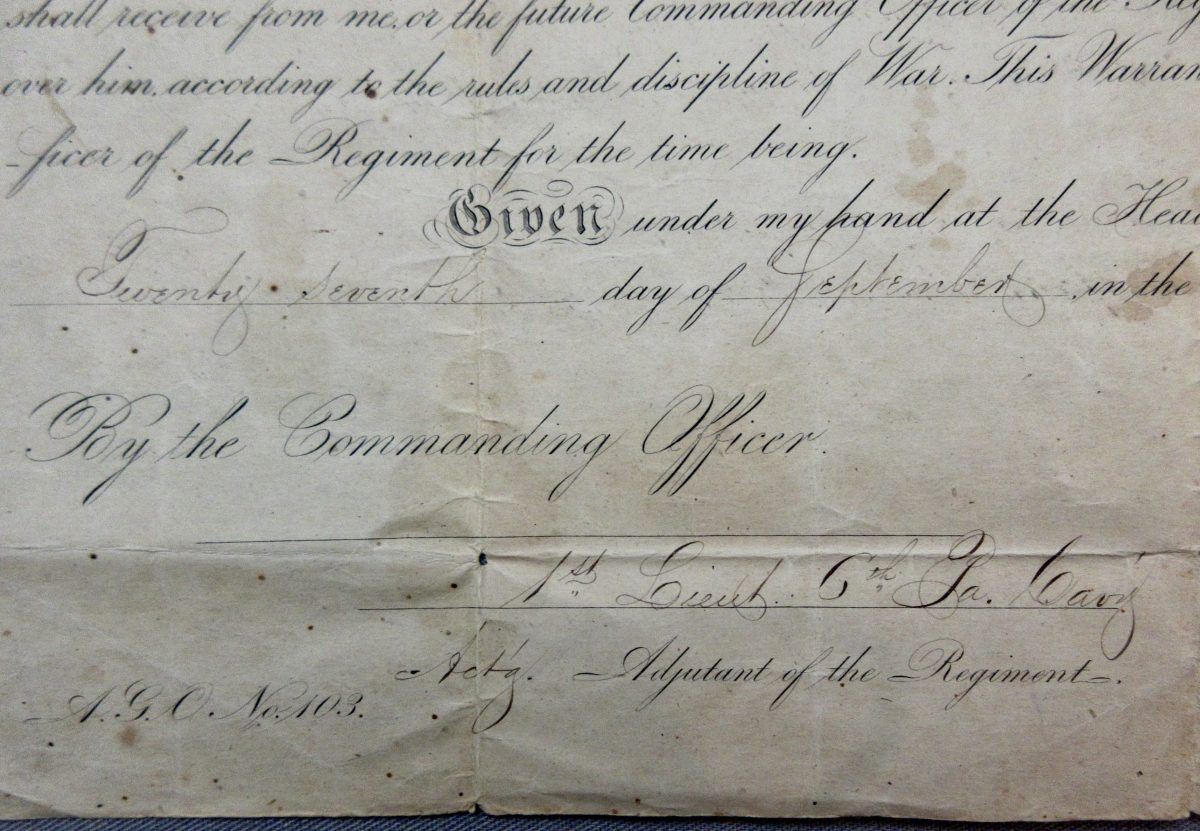 shall receive from me, or the future Commanding Officer of the Reg
over him, according to the rules and discipline of War. This Warran
-ficer of the Regiment for the time being.
Given under my hand at the Hea
Twenty seventh day of September in the
By the Commanding Officer.
1st Lieut. 6th Pa. Cavy
Act'g. Adjutant of the Regiment.
A. G. O. No. 103.